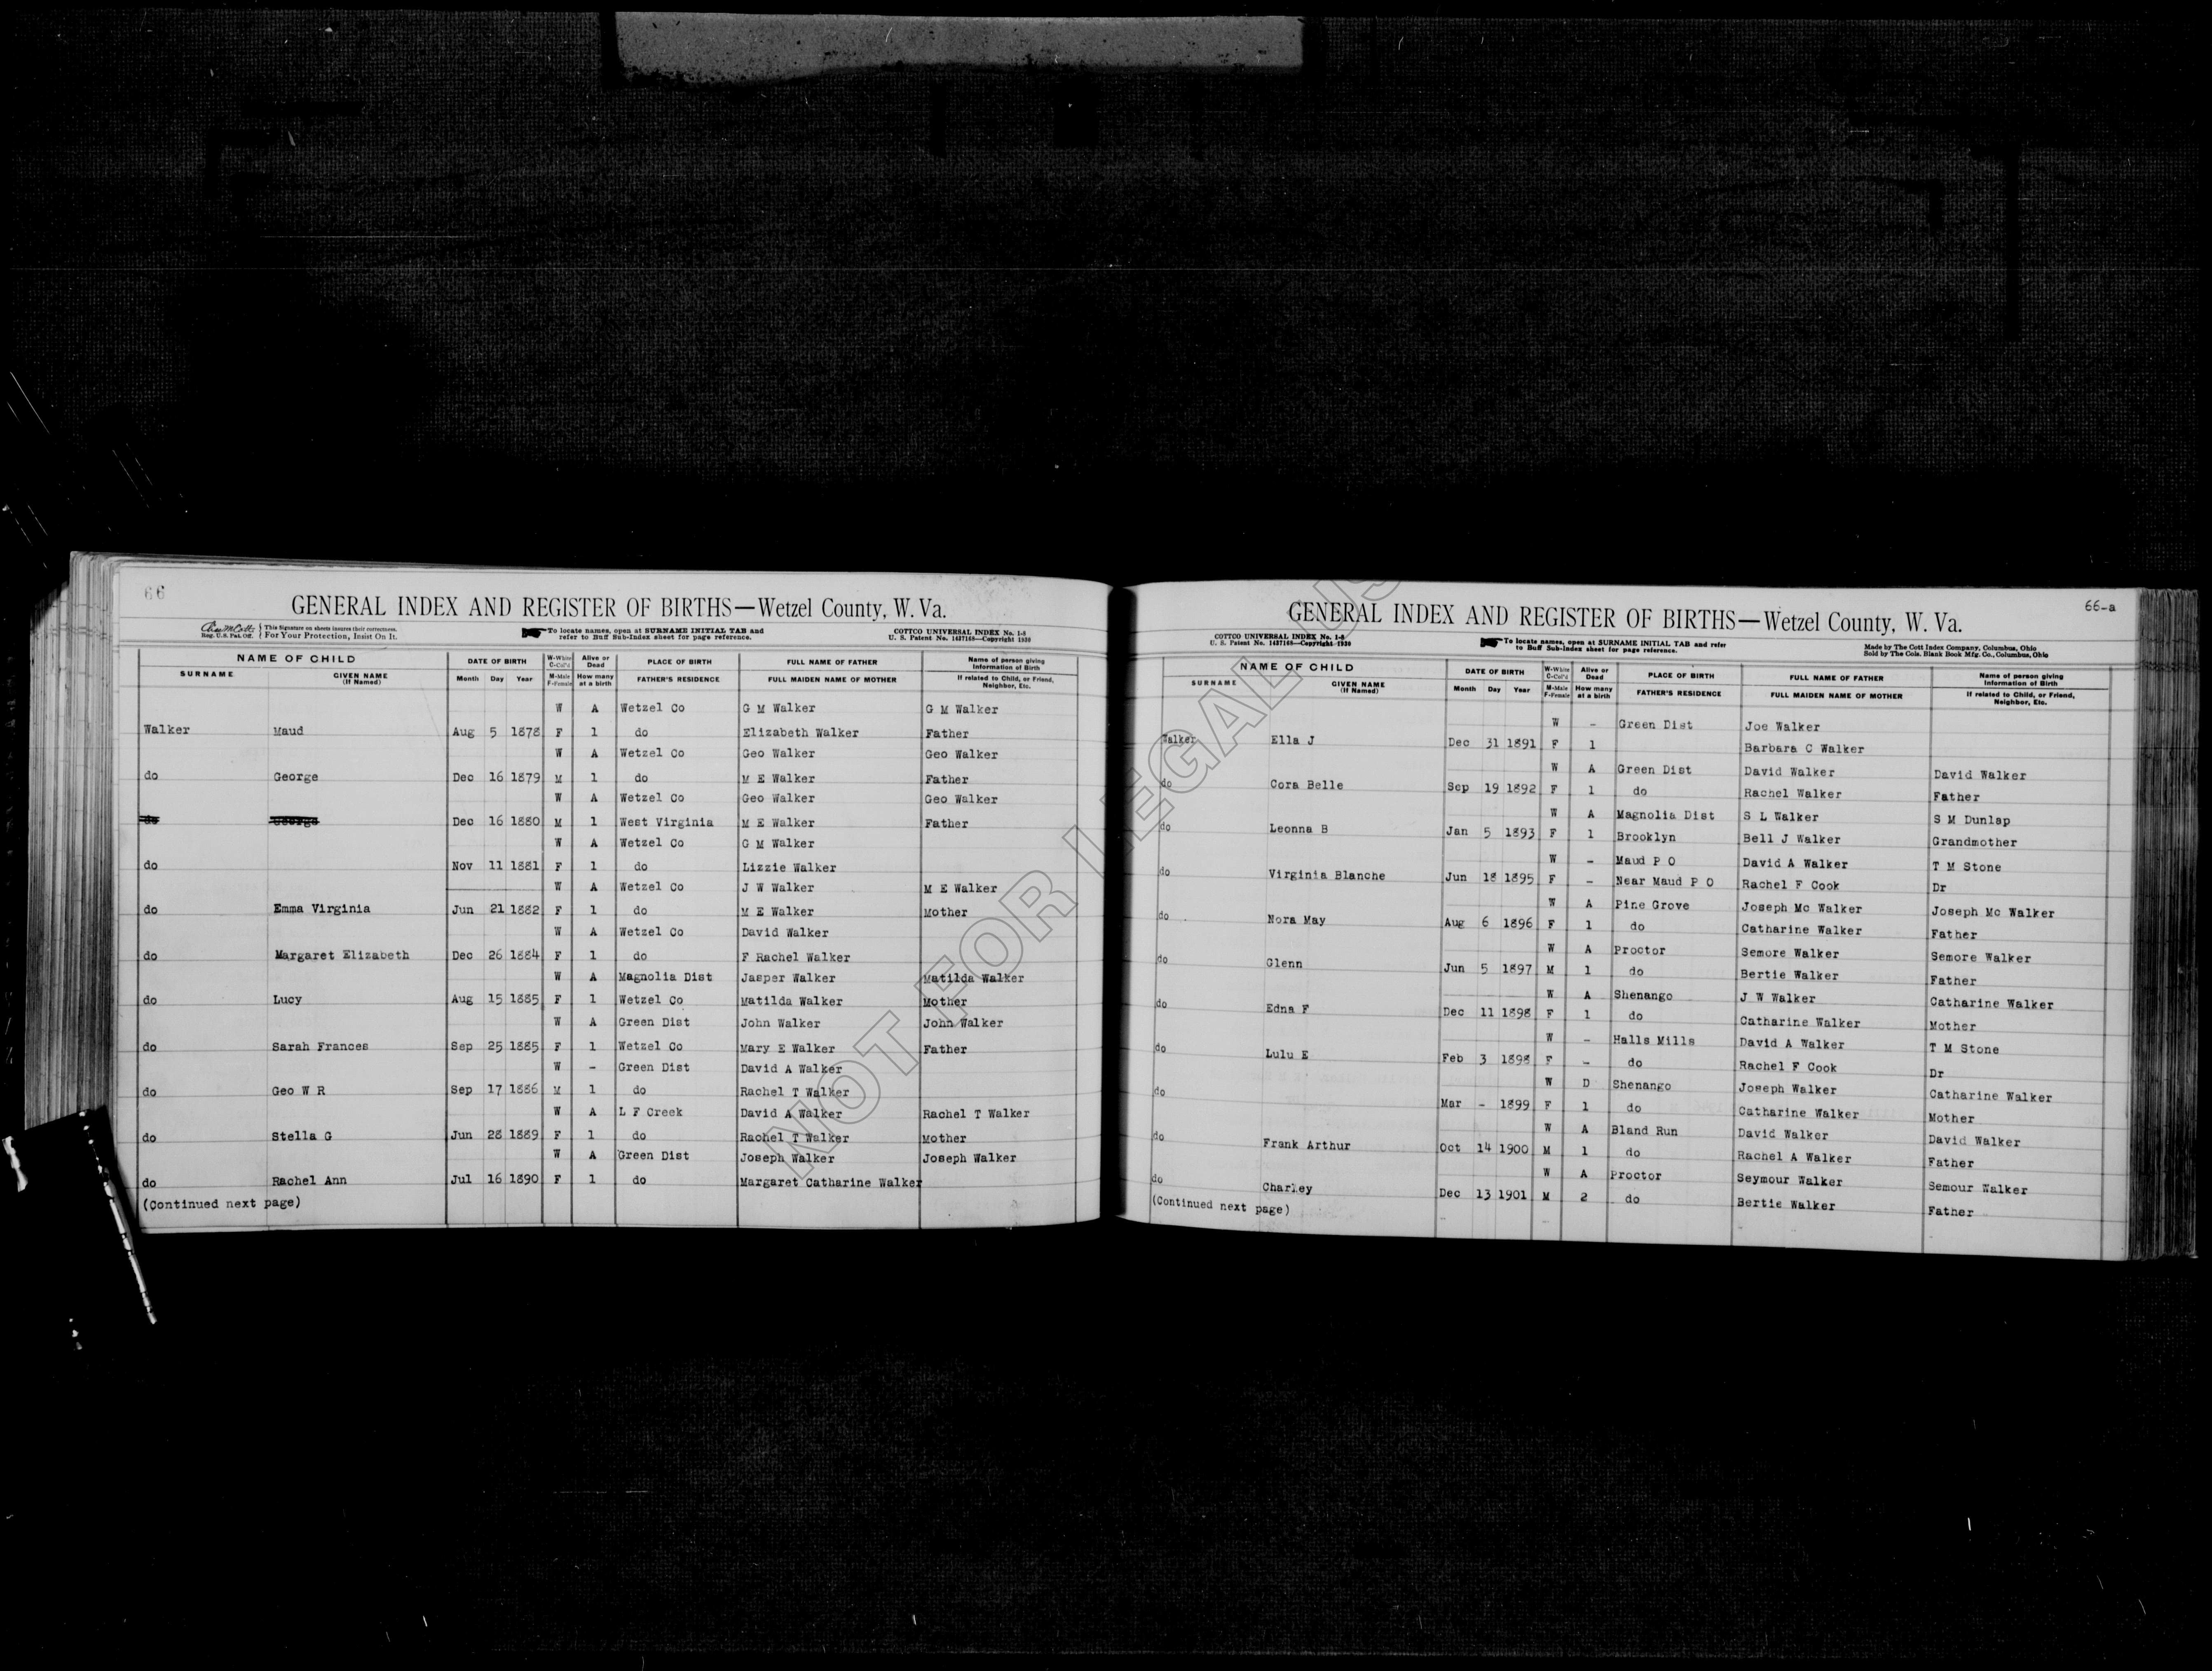 66
GENERAL INDEX AND REGISTER OF BIRTHS—Wetzel County, W. Va.
Reg. U.S. Pat. Off. { This Signature on sheets insures their correctness. For Your Protection, Insist On It.
To locate names, open at SURNAME INITIAL TAB and refer to Buff Sub-Index sheet for page reference.
COTTCO UNIVERSAL INDEX No. 1-8
U. S. Patent No. 1437168—Copyright 1930
NAME OF CHILD DATE OF BIRTH W-White C-Col'd Alive or Dead PLACE OF BIRTH FULL NAME OF FATHER Name of person giving Information of Birth
SURNAME GIVEN NAME (If Named) Month Day Year M-Male F-Female How many at a birth FATHER'S RESIDENCE FULL MAIDEN NAME OF MOTHER If related to Child, or Friend, Neighbor, Etc.
W A Wetzel Co G M Walker G M Walker
Walker Maud Aug 5 1878 F 1 do Elizabeth Walker Father
W A Wetzel Co Geo Walker Geo Walker
do George Dec 16 1879 M 1 do M E Walker Father
W A Wetzel Co Geo Walker Geo Walker
do George Dec 16 1880 M 1 West Virginia M E Walker Father
W A Wetzel Co G M Walker
do Nov 11 1881 F 1 do Lizzie Walker
W A Wetzel Co J W Walker M E Walker
do Emma Virginia Jun 21 1882 F 1 do M E Walker Mother
W A Wetzel Co David Walker
do Margaret Elizabeth Dec 26 1884 F 1 do F Rachel Walker
W A Magnolia Dist Jasper Walker Matilda Walker
do Lucy Aug 15 1885 F 1 Wetzel Co Matilda Walker Mother
W A Green Dist John Walker John Walker
do Sarah Frances Sep 25 1885 F 1 Wetzel Co Mary E Walker Father
W - Green Dist David A Walker
do Geo W R Sep 17 1886 M 1 do Rachel T Walker
W A L F Creek David A Walker Rachel T Walker
do Stella G Jun 28 1889 F 1 do Rachel T Walker Mother
W A Green Dist Joseph Walker Joseph Walker
do Rachel Ann Jul 16 1890 F 1 do Margaret Catharine Walker
(Continued next page)
66-a
GENERAL INDEX AND REGISTER OF BIRTHS—Wetzel County, W. Va.
COTTCO UNIVERSAL INDEX No. 1-8
U. S. Patent No. 1437168—Copyright 1930
To locate names, open at SURNAME INITIAL TAB and refer to Buff Sub-Index sheet for page reference.
Made by The Cott Index Company, Columbus, Ohio
Sold by The Cols. Blank Book Mfg. Co., Columbus, Ohio
NAME OF CHILD DATE OF BIRTH W-White C-Col'd Alive or Dead PLACE OF BIRTH FULL NAME OF FATHER Name of person giving Information of Birth
SURNAME GIVEN NAME (If Named) Month Day Year M-Male F-Female How many at a birth FATHER'S RESIDENCE FULL MAIDEN NAME OF MOTHER If related to Child, or Friend, Neighbor, Etc.
W - Green Dist Joe Walker
Walker Ella J Dec 31 1891 F 1 Barbara C Walker
W A Green Dist David Walker David Walker
do Cora Belle Sep 19 1892 F 1 do Rachel Walker Father
W A Magnolia Dist S L Walker S M Dunlap
do Leonna B Jan 5 1893 F 1 Brooklyn Bell J Walker Grandmother
W - Maud P O David A Walker T M Stone
do Virginia Blanche Jun 18 1895 F - Near Maud P O Rachel F Cook Dr
W A Pine Grove Joseph Mc Walker Joseph Mc Walker
do Nora May Aug 6 1896 F 1 do Catharine Walker Father
W A Proctor Semore Walker Semore Walker
do Glenn Jun 5 1897 M 1 do Bertie Walker Father
W A Shenango J W Walker Catharine Walker
do Edna F Dec 11 1898 F 1 do Catharine Walker Mother
W - Halls Mills David A Walker T M Stone
do Lulu E Feb 3 1898 F - do Rachel F Cook Dr
W D Shenango Joseph Walker Catharine Walker
do Mar - 1899 F 1 do Catharine Walker Mother
W A Bland Run David Walker David Walker
do Frank Arthur Oct 14 1900 M 1 do Rachel A Walker Father
W A Proctor Seymour Walker Semour Walker
do Charley Dec 13 1901 M 2 do Bertie Walker Father
(Continued next page)
NOT FOR LEGAL US